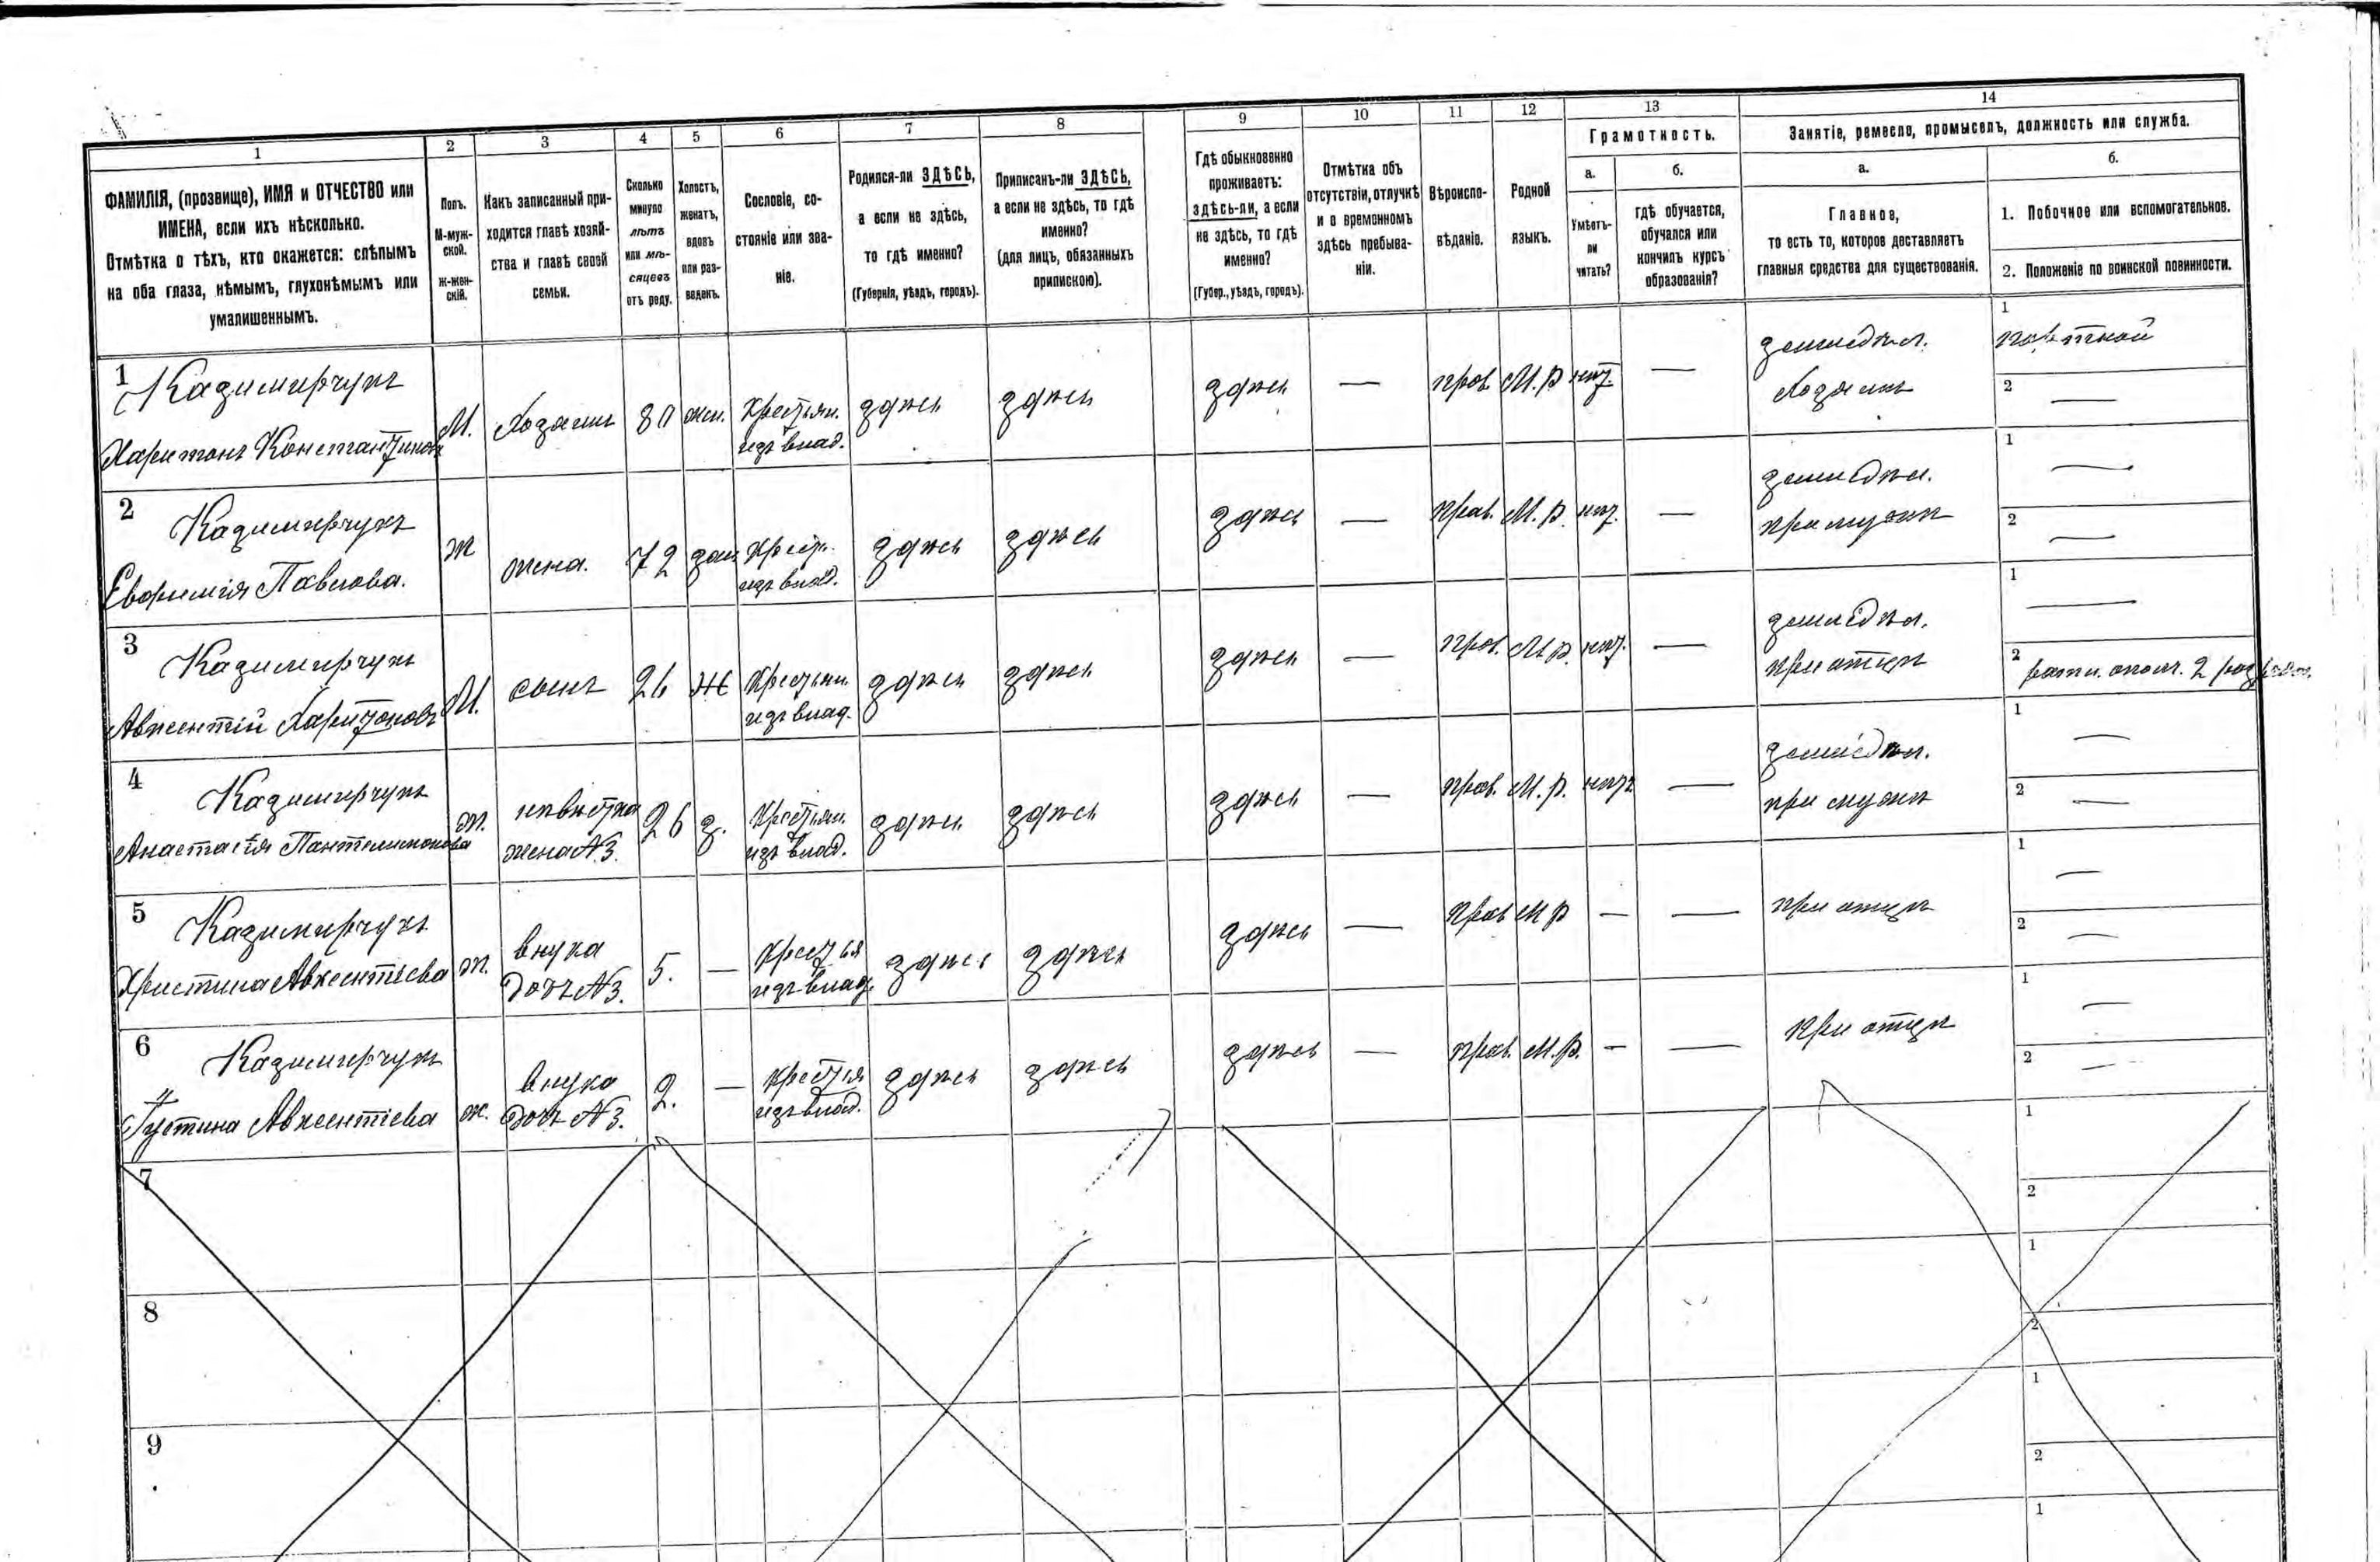 1 2 3 4 5 6 7 8 9 10 11 12 13 14
ФАМИЛІЯ, (прозвище), ИМЯ и ОТЧЕСТВО или
ИМЕНА, если ихъ нѣсколько.
Отмѣтка о тѣхъ, кто окажется: слѣпымъ
на оба глаза, нѣмымъ, глухонѣмымъ или
умалишеннымъ.
Полъ.
М-муж-
ской.
Ж-жен-
скій.
Какъ записанный при-
ходится главѣ хозяй-
ства и главѣ своей
семьи.
Сколько
минуло
лѣтъ
или мѣ-
сяцевъ
отъ роду.
Холостъ,
женатъ,
вдовъ
или раз-
веденъ.
Сословіе, со-
стояніе или зва-
ніе.
Родился-ли ЗДѢСЬ,
а если не здѣсь,
то гдѣ именно?
(Губернія, уѣздъ, городъ).
Приписанъ-ли ЗДѢСЬ,
а если не здѣсь, то гдѣ
именно?
(для лицъ, обязанныхъ
припискою).
Гдѣ обыкновенно
проживаетъ:
здѣсь-ли, а если
не здѣсь, то гдѣ
именно?
(Губер., уѣздъ, городъ).
Отмѣтка объ
отсутствіи, отлучкѣ
и о временномъ
здѣсь пребыва-
ніи.
Вѣроиспо-
вѣданіе.
Родной
языкъ.
Грамотность.
а.
Умѣетъ-
ли
читать?
б.
гдѣ обучается,
обучался или
кончилъ курсъ
образованія?
Занятіе, ремесло, промыселъ, должность или служба.
а.
Главное,
то есть то, которое доставляетъ
главныя средства для существованія.
б.
1. Побочное или вспомогательное.
2. Положеніе по воинской повинности.
1
Казимирчукъ
Харитонъ Константиновъ
М.
Хозяинъ
80
жен.
Крестьян.
изъ влад.
здѣсь
здѣсь
здѣсь
—
прав.
М.р
нѣт.
—
земледѣл.
Хозяинъ
1
2
—
2
Казимирчукъ
Евфимія Павлова.
ж
жена.
72
зам
Крест.
изъ влад.
здѣсь
здѣсь
здѣсь
—
прав.
М.р.
нѣт.
—
земледѣл.
при мужѣ
1
—
2
—
3
Казимирчукъ
Авксентій Харитоновъ
М.
сынъ
26
Ж
Крестьян.
изъ влад.
здѣсь
здѣсь
здѣсь
—
прав.
М.р.
нѣт.
—
земледѣл.
при отцѣ
1
—
2
ратн. опол. 2 разряда.
4
Казимирчукъ
Анастасія Пантелимонова
ж.
невѣстка
жена №3.
26
з.
Крестьян.
изъ влад.
здѣсь
здѣсь
здѣсь
—
прав.
М.р.
нѣтъ
—
земледѣл.
при мужѣ
1
—
2
—
5
Казимирчукъ
Христина Авксентіева
ж.
внука
дочь №3.
5.
—
Крестья
изъ влад.
здѣсь
здѣсь
здѣсь
—
прав
М р
—
—
при отцѣ
1
—
2
—
6
Казимирчукъ
Густина Авксентіева
ж.
внука
дочь №3.
2.
—
Крестья
изъ влад.
здѣсь
здѣсь
здѣсь
—
прав.
М.р.
—
—
при отцѣ
1
—
2
—
7
1
2
8
1
2
9
1
2
1